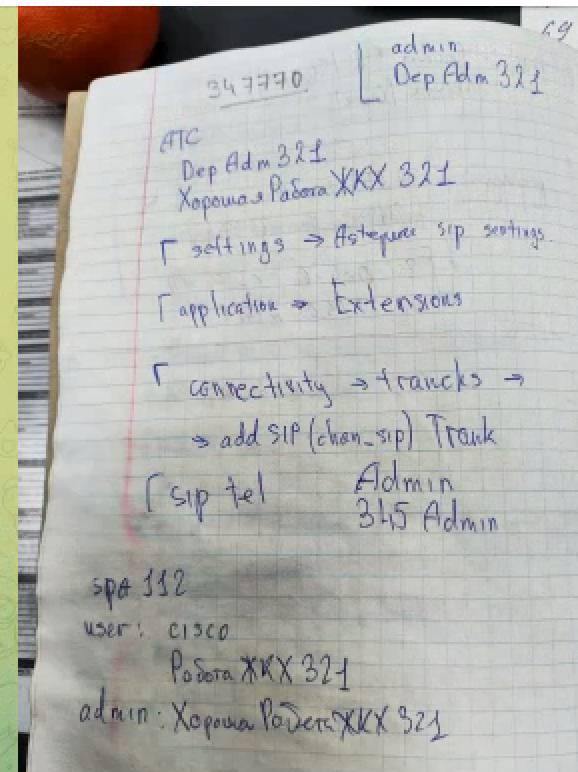 69
347770
admin
Dep Adm 321
АТС
Dep Adm 321
Хорошая Работа ЖКХ 321
settings → sip settings
application → Extensions
connectivity → trancks →
→ add SIP (chan_sip) Trank
sip tel Admin
345 Admin
spa 112
user: cisco
Работа ЖКХ 321
admin: Хороша Работа ЖКХ 321